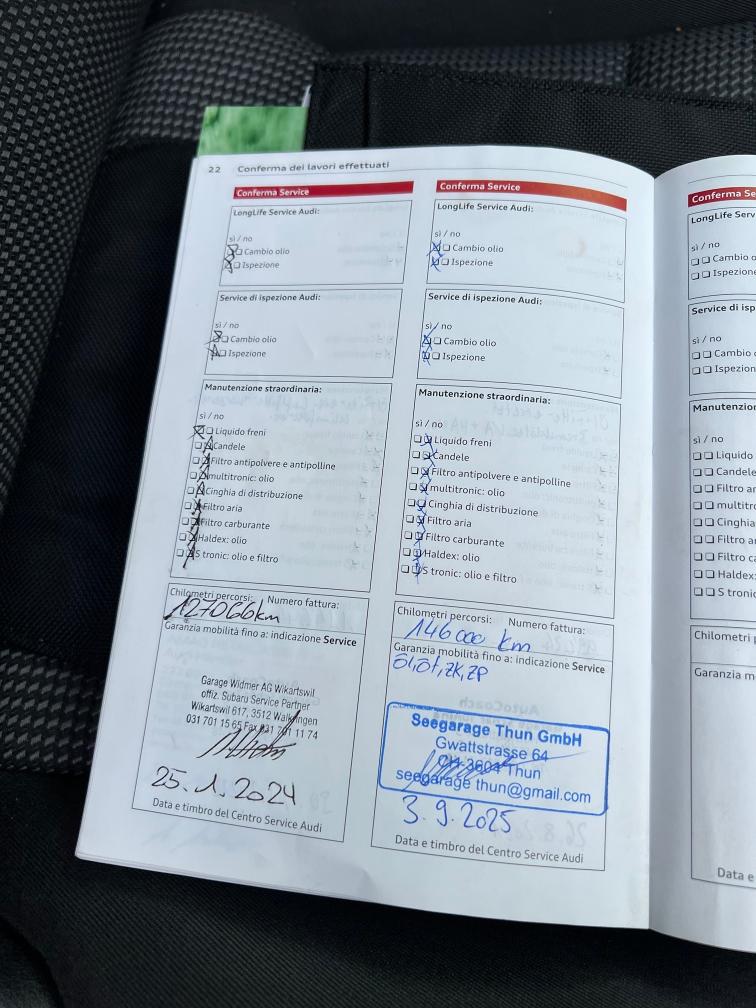 22 Conferma dei lavori effettuati
Conferma Service
LongLife Service Audi:
sì / no
Cambio olio
Ispezione
Service di ispezione Audi:
sì / no
Cambio olio
Ispezione
Manutenzione straordinaria:
sì / no
Liquido freni
Candele
Filtro antipolvere e antipolline
multitronic: olio
Cinghia di distribuzione
Filtro aria
Filtro carburante
Haldex: olio
S tronic: olio e filtro
Chilometri percorsi: Numero fattura:
127066km
Garanzia mobilità fino a: indicazione Service
Garage Widmer AG Wikartswil
offiz. Subaru Service Partner
Wikartswil 617, 3512 Walkringen
031 701 15 65 Fax 031 701 11 74
25.1.2024
Data e timbro del Centro Service Audi
Conferma Service
LongLife Service Audi:
sì / no
Cambio olio
Ispezione
Service di ispezione Audi:
sì / no
Cambio olio
Ispezione
Manutenzione straordinaria:
sì / no
Liquido freni
Candele
Filtro antipolvere e antipolline
multitronic: olio
Cinghia di distribuzione
Filtro aria
Filtro carburante
Haldex: olio
S tronic: olio e filtro
Chilometri percorsi: Numero fattura:
146000 km
Garanzia mobilità fino a: indicazione Service
Seegarage Thun GmbH
Gwattstrasse 64
CH-3604 Thun
seegarage thun@gmail.com
3.9.2025
Data e timbro del Centro Service Audi
Conferma Se
LongLife Serv
sì / no
Cambio o
Ispezione
Service di isp
sì / no
Cambio
Ispezion
Manutenzion
sì / no
Liquido
Candele
Filtro an
multitro
Cinghia
Filtro a
Filtro ca
Haldex:
S tronic
Chilometri p
Garanzia m
Data e